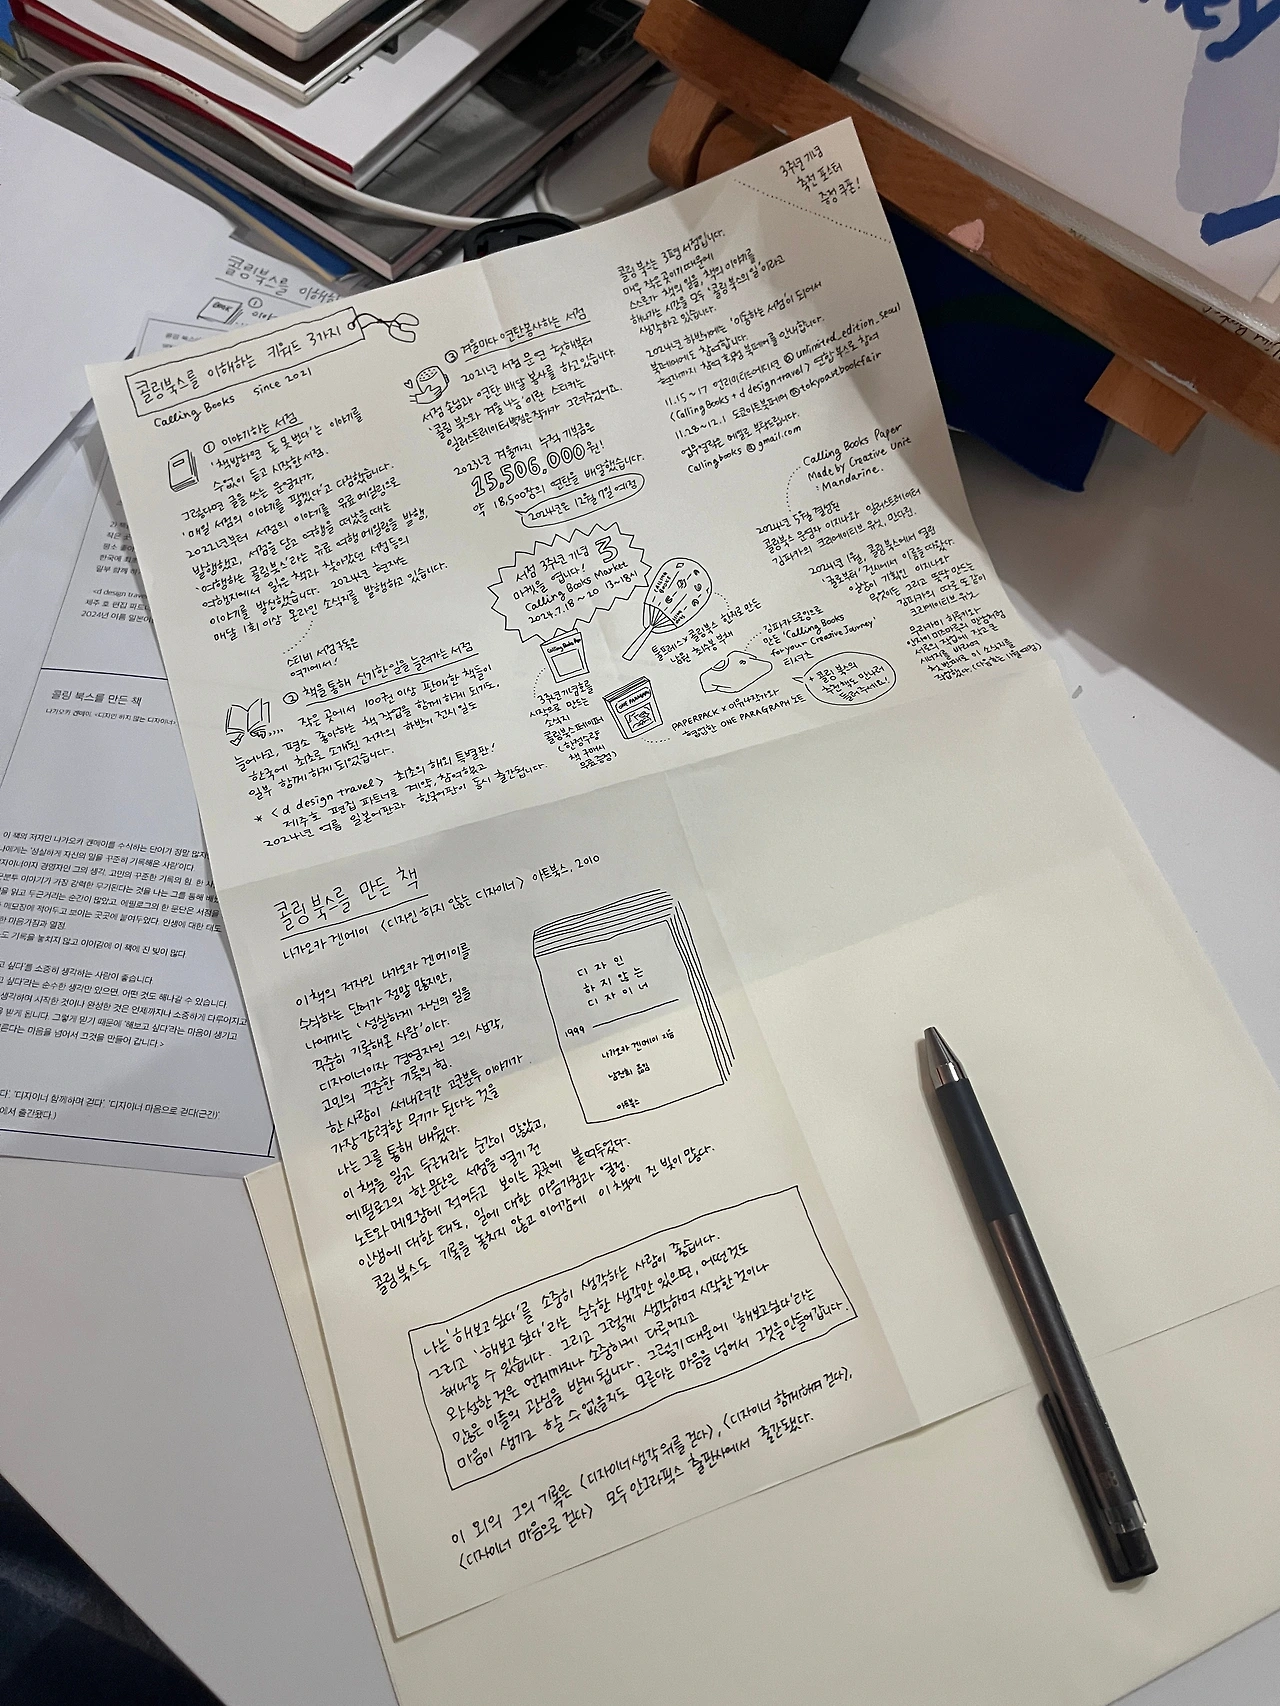 3주년 기념
축전 포스터
증정 쿠폰!
콜링 북스를 이해하는 키워드 3가지
Calling Books since 2021
① 이야기하는 서점
'책방하면 돈 못 번다'는 이야기를
수없이 듣고 시작한 서점.
그렇다면 글을 쓰는 운영자가,
'매일 서점의 이야기를 팔겠다'고 다짐했습니다.
2022년부터 서점의 이야기를 유료 메일링으로
발행했고, 서점을 닫고 여행을 떠났을 때는
'여행하는 콜링북스'라는 유료 여행 메일링을 발행,
여행지에서 읽은 책과 찾아갔던 서점들의
이야기를 발신했습니다. 2024년 현재는
매달 1회 이상 온라인 소식지를 발행하고 있습니다.
스티비 서점 구독은
여기에서!
② 책을 통해 신기한 일을 늘려가는 서점
작은 곳에서 100권 이상 판매한 책들이
늘어나고, 평소 좋아하는 책 작업을 함께 하게 되기도,
한국에 최초로 소개된 저자의 하반기 전시 일도
일부 함께 하게 되었습니다.
* <d design travel> 최초의 해외 특별판!
제주호 편집 파트너로 계약, 참여했고
2024년 여름 일본어판과 한국어판이 동시 출간됩니다.
③ 겨울마다 연탄봉사하는 서점
2021년 서점 문 연 첫해부터
서점 손님과 연탄 배달 봉사를 하고 있습니다.
'콜링 북스와 겨울 나눔'이란 스티커는
일러스트레이터 박정은 작가가 그려주었어요.
2023년 겨울까지 누적 기부금은
15,506,000원!
약 18,500장의 연탄을 배달했습니다.
2024년은 12월 7일 예정
서점 3주년 기념 3
마켓을 엽니다!
Calling Books Market
2024.7.18~20 13-18시
3주년 기념호를
시작으로 만드는
소식지
콜링북스페이퍼
(한정수량
책 구매시
무료증정)
ONE PARAGRAPH
PAPERPACK x 이유나 작가와
협업한 ONE PARAGRAPH 노트
콜링북스 한지로 만든
남원 최수봉 부채
김파카 드로잉으로
만든 'Calling Books
for your Creative Journey'
티셔츠
+ 콜링 북스의
추천책도 만나러
들러주세요!
콜링 북스는 3평 서점입니다.
매우 작은 곳이기 때문에
스스로가 책의 일을, 책의 이야기를
해나가는 시간을 모두 '콜링 북스의 일'이라고
생각하고 있습니다.
2024년 하반기에는 '이동하는 서점'이 되어서
북페어에도 참여합니다.
현재까지 참여 확정 북페어를 안내합니다.
11.15~17 언리미티드에디션 @unlimited_edition_seoul
<Calling Books + d design travel> 연합 부스로 참여
11.28~12.1 도쿄아트북페어 @tokyoartbookfair
업무연락은 메일로 부탁드립니다.
callingbooks@gmail.com
Calling Books Paper
Made by Creative Unit
: Mandarine.
2024년 5월 결성된
콜링북스 운영자 이지나와 일러스트레이터
김파카의 크리에이티브 유닛, 만다린.
2024년 1월, 콜링북스에서 열린
전시에서 이름을 따왔다.
일상이 기획인 이지나와
무엇이든 그리고 뚝딱 만드는
김파카의 따로 또 같이
크리에이티브 유닛.
무라카미 하루키와
안자이 미즈마루의 만남처럼
서로의 작업에 작은
시너지를 바라며
첫 번째로 이 소식지를
작업했다. (다음호는 11월 예정)
콜링 북스를 만든 책
나가오카 겐메이 <디자인 하지 않는 디자이너> 아트북스, 2010
이 책의 저자인 나가오카 겐메이를
수식하는 단어가 정말 많지만,
나에게는 '성실하게 자신의 일을
꾸준히 기록해온 사람'이다.
디자이너이자 경영자인 그의 생각,
고민의 꾸준한 기록의 힘.
한 사람이 써내려간 고군분투 이야기가
가장 강력한 무기가 된다는 것을
나는 그를 통해 배웠다.
이 책을 읽고 두근거리는 순간이 많았고,
에필로그의 한 문단은 서점을 열기 전
노트와 메모장에 적어두고 보이는 곳곳에 붙여두었다.
인생에 대한 태도, 일에 대한 마음가짐과 열정.
콜링 북스도 기록을 놓치지 않고 이어감에 이 책에 진 빚이 많다.
디자인
하지 않는
디자이너
1999
나가오카 겐메이 지음
남진희 옮김
아트북스
나는 '해보고 싶다'를 소중히 생각하는 사람이 좋습니다.
그리고 '해보고 싶다'라는 순수한 생각만 있으면, 어떤 것도
해나갈 수 있습니다. 그리고 그렇게 생각하며 시작한 것이나
완성한 것은 언제까지나 소중하게 다루어지고
많은 이들의 관심을 받게 됩니다. 그렇기 때문에 '해보고 싶다'라는
마음이 생기고 할 수 없을지도 모른다는 마음을 넘어서 그것을 만들어갑니다.
이 외의 그의 기록은 <디자이너 생각 위를 걷다>, <디자이너 함께하며 걷다>,
<디자이너 마음으로 걷다> 모두 안그라픽스 출판사에서 출간됐다.
콜링북스를 이해하
콜링 북스를 만든 책
나가오카 겐메이, <디자인 하지 않는 디자이너>
이 책의 저자인 나가오카 겐메이를 수식하는 단어가 정말 많지
나에게는 '성실하게 자신의 일을 꾸준히 기록해온 사람'이다
디자이너이자 경영자인 그의 생각, 고민의 꾸준한 기록의 힘. 한 사